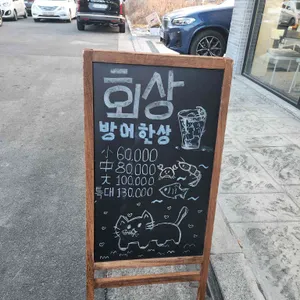 회상
방어한상
小 60.000
中 80.000
大 100.000
특대 130.000